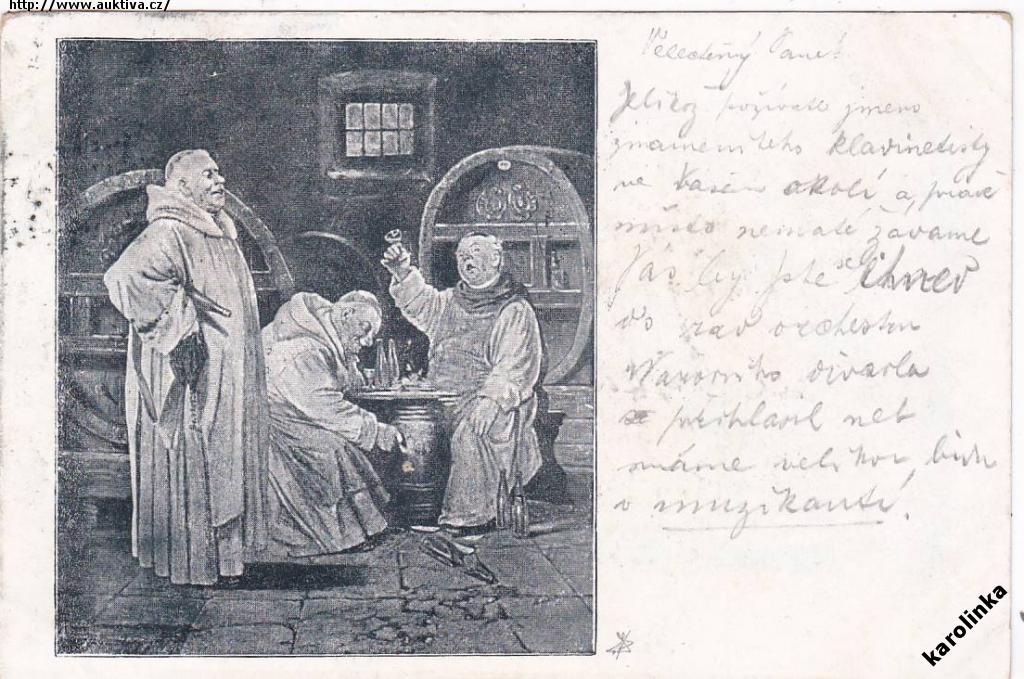 http://www.auktiva.cz/
Velectěný Pane!
Jelikož požíváte jmeno
znameniteho klavinetisty
ve Vašem okolí a právě
místo nemáte žávame
Vás by jste se ihned
do orchestru
divadla
se přihlásil neb
máme velikou bídu
o muzikanti.
karolinka